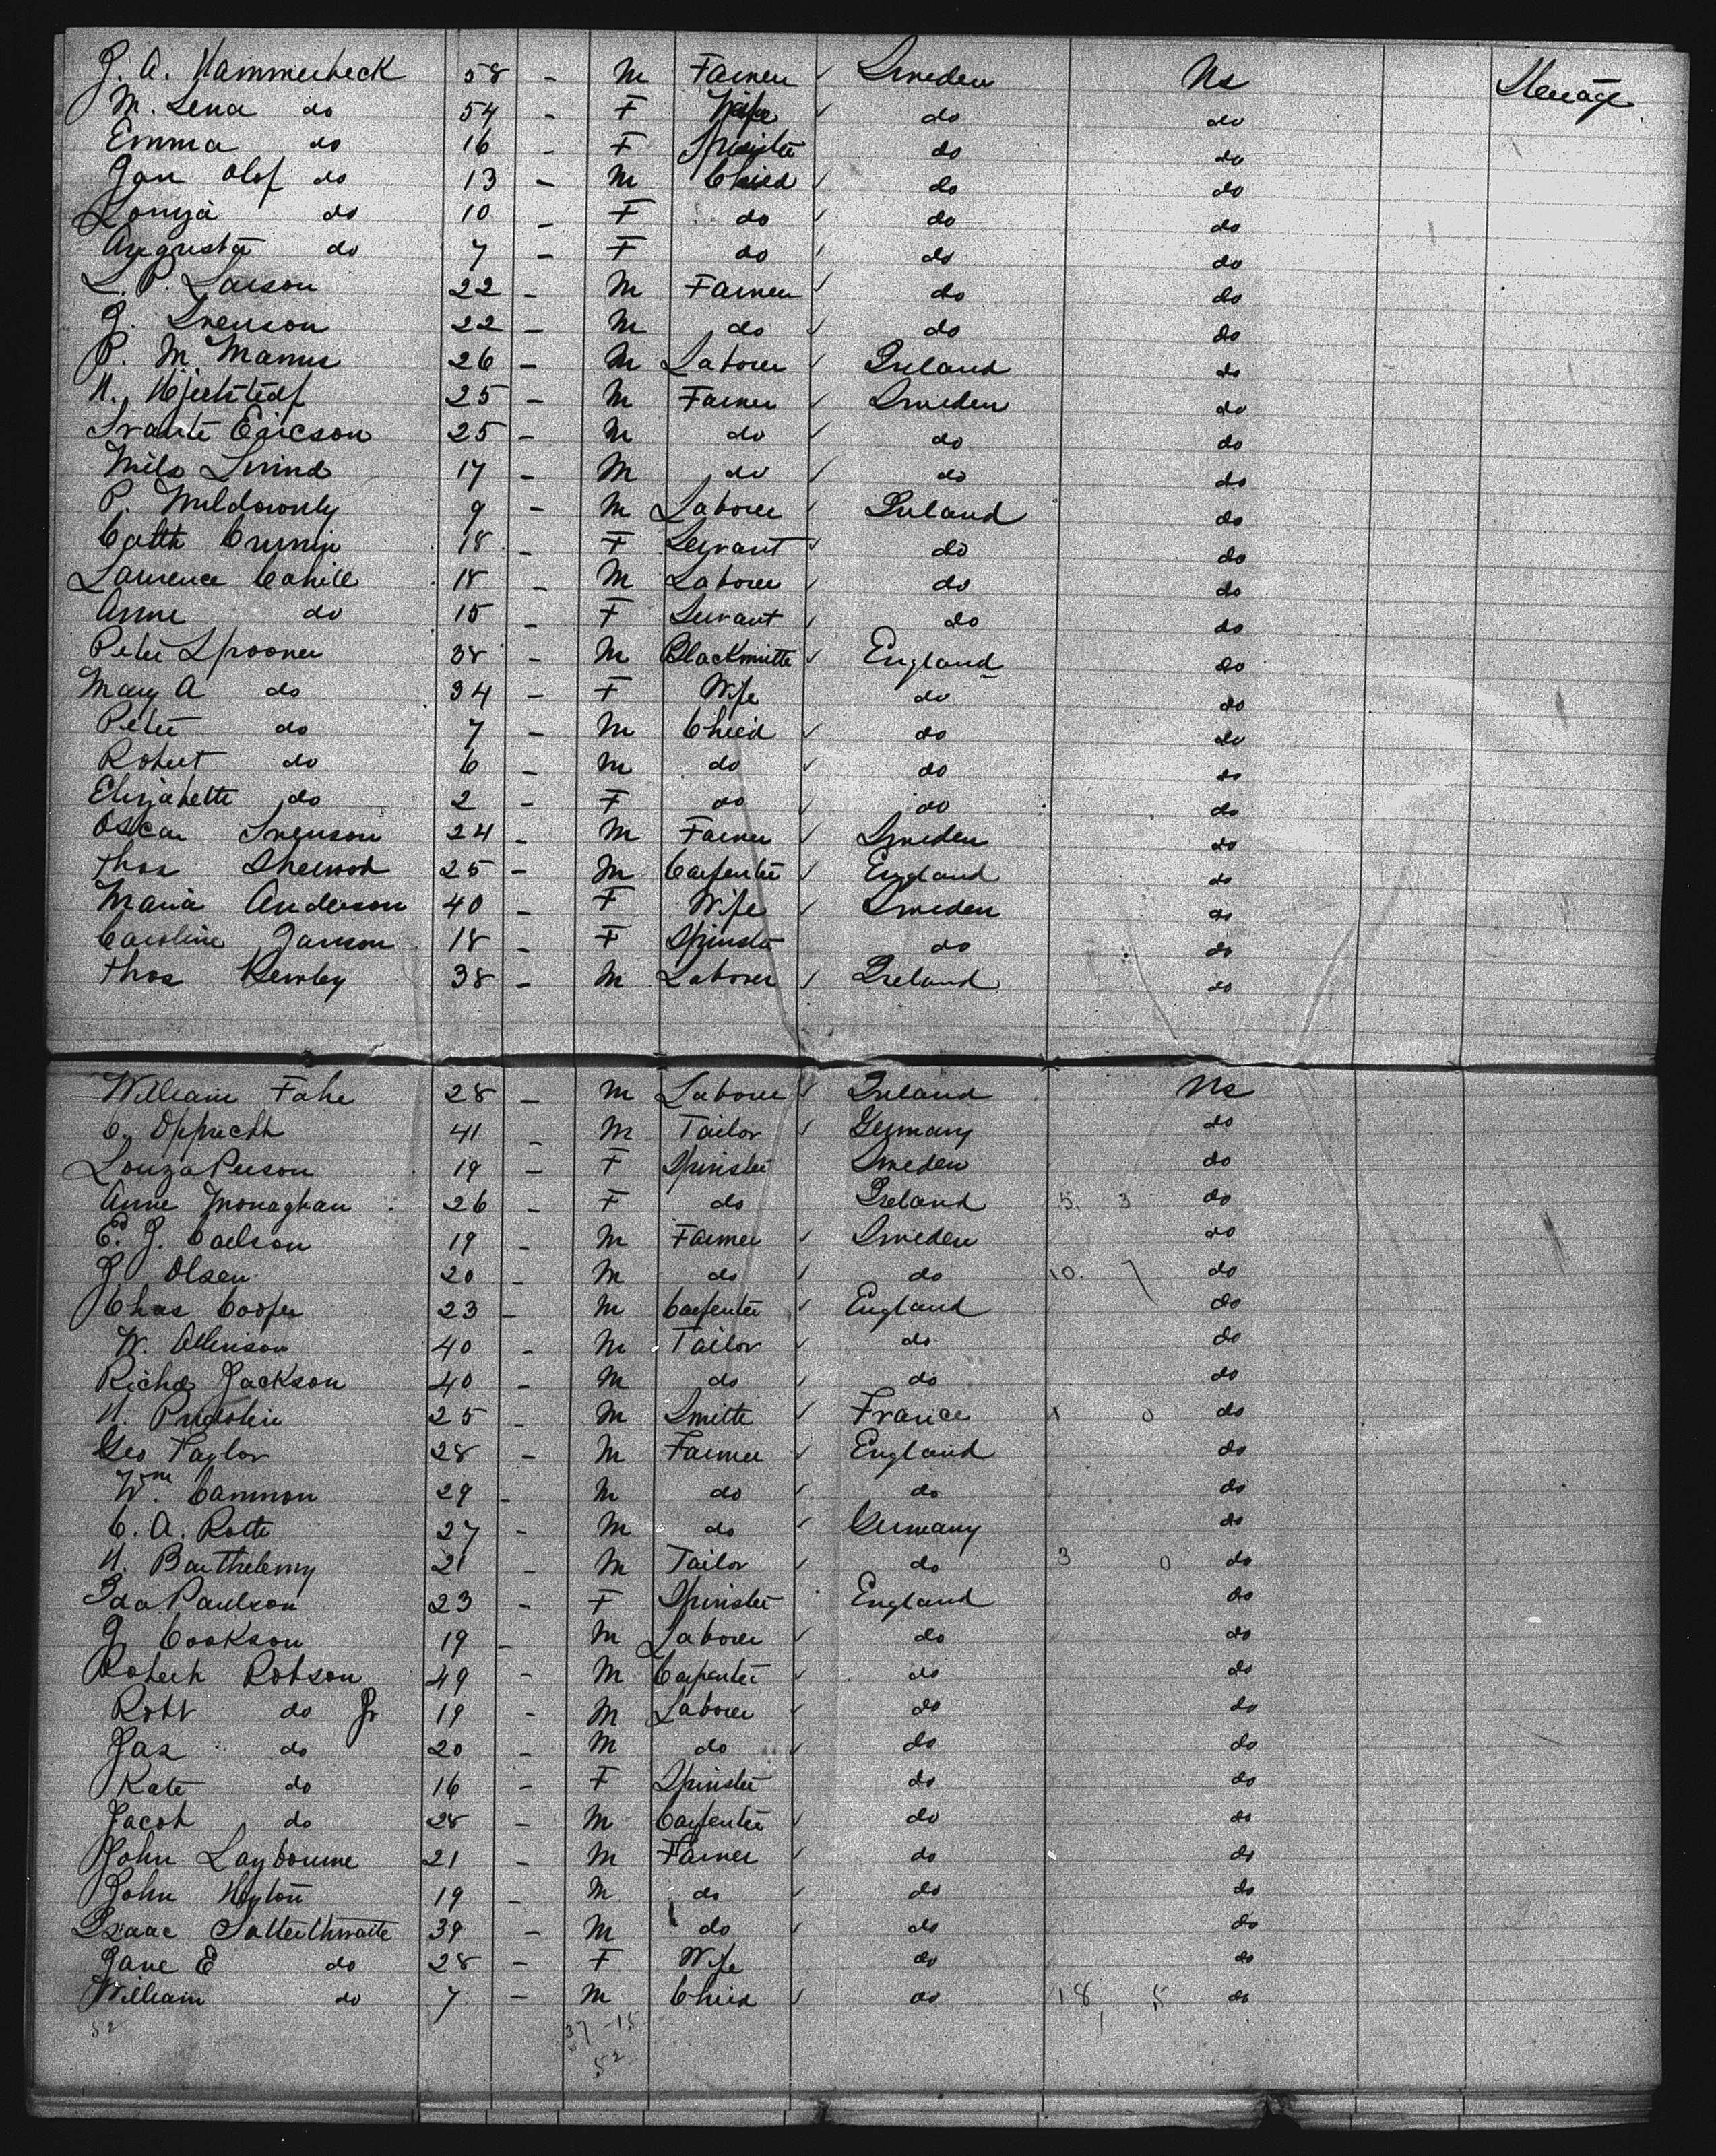 J. A. Hammerbeck 58 - M Farmer Sweden US Steerage
M. Lena do 54 - F Wife do do
Emma do 16 - F Spinster do do
Jan Olof do 13 - M Child do do
Louiza do 10 - F do do do
Augusta do 7 - F do do do
L. P. Larson 22 - M Farmer do do
J. Svenson 22 - M do do do
P. McManus 26 - M Laborer Ireland do
25 - M Farmer Sweden do
Svante Ericson 25 - M do do do
Nils 17 - M do do do
P. Muldownly 9 - M Laborer Ireland do
Cath 18 - F Servant do do
Laurence Cahill 18 - M Laborer do do
Anne do 15 - F Servant do do
Peter Spooner 38 - M Blacksmith England do
Mary A do 34 - F Wife do do
Peter do 7 - M Child do do
Robert do 6 - M do do do
Elizabeth do 2 - F do do do
Oscar Svenson 24 - M Farmer Sweden do
Thos Sherwood 25 - M Carpenter England do
Maria Anderson 40 - F Wife Sweden do
Caroline Janson 18 - F Spinster do do
Thos Kewley 38 - M Laborer Ireland do
William Fahe 28 - M Laborer Ireland US
C. 41 - M Tailor Germany do
Louiza Person 19 - F Spinster Sweden do
Anne Monaghan 26 - F do Ireland 5 3 do
E. J. Carlson 19 - M Farmer Sweden do
J Olsen 20 - M do do 10. 7 do
Chas Cooper 23 - M Carpenter England do
W. Atkinson 40 - M Tailor do do
Richd Jackson 40 - M do do do
25 - M Smith France 1 0 do
Geo Taylor 28 - M Farmer England do
Wm Cammon 29 - M do do do
C. A. Rotte 27 - M do Germany do
H. Barthelemy 21 - M Tailor do 3 0 do
Ida Paulson 23 - F Spinster England do
J. Cookson 19 - M Laborer do do
Robert Robson 49 - M Carpenter do do
Robt do Jr 19 - M Laborer do do
Jas do 20 - M do do do
Kate do 16 - F Spinster do do
Jacob do 28 - M Carpenter do do
John Laybourne 21 - M Farmer do do
John Hylton 19 - M do do do
Isaac Satterthwaite 39 - M do do do
Jane E do 28 - F Wife do do
William do 7 - M Child do 18 5 do
52 37 - 15
52